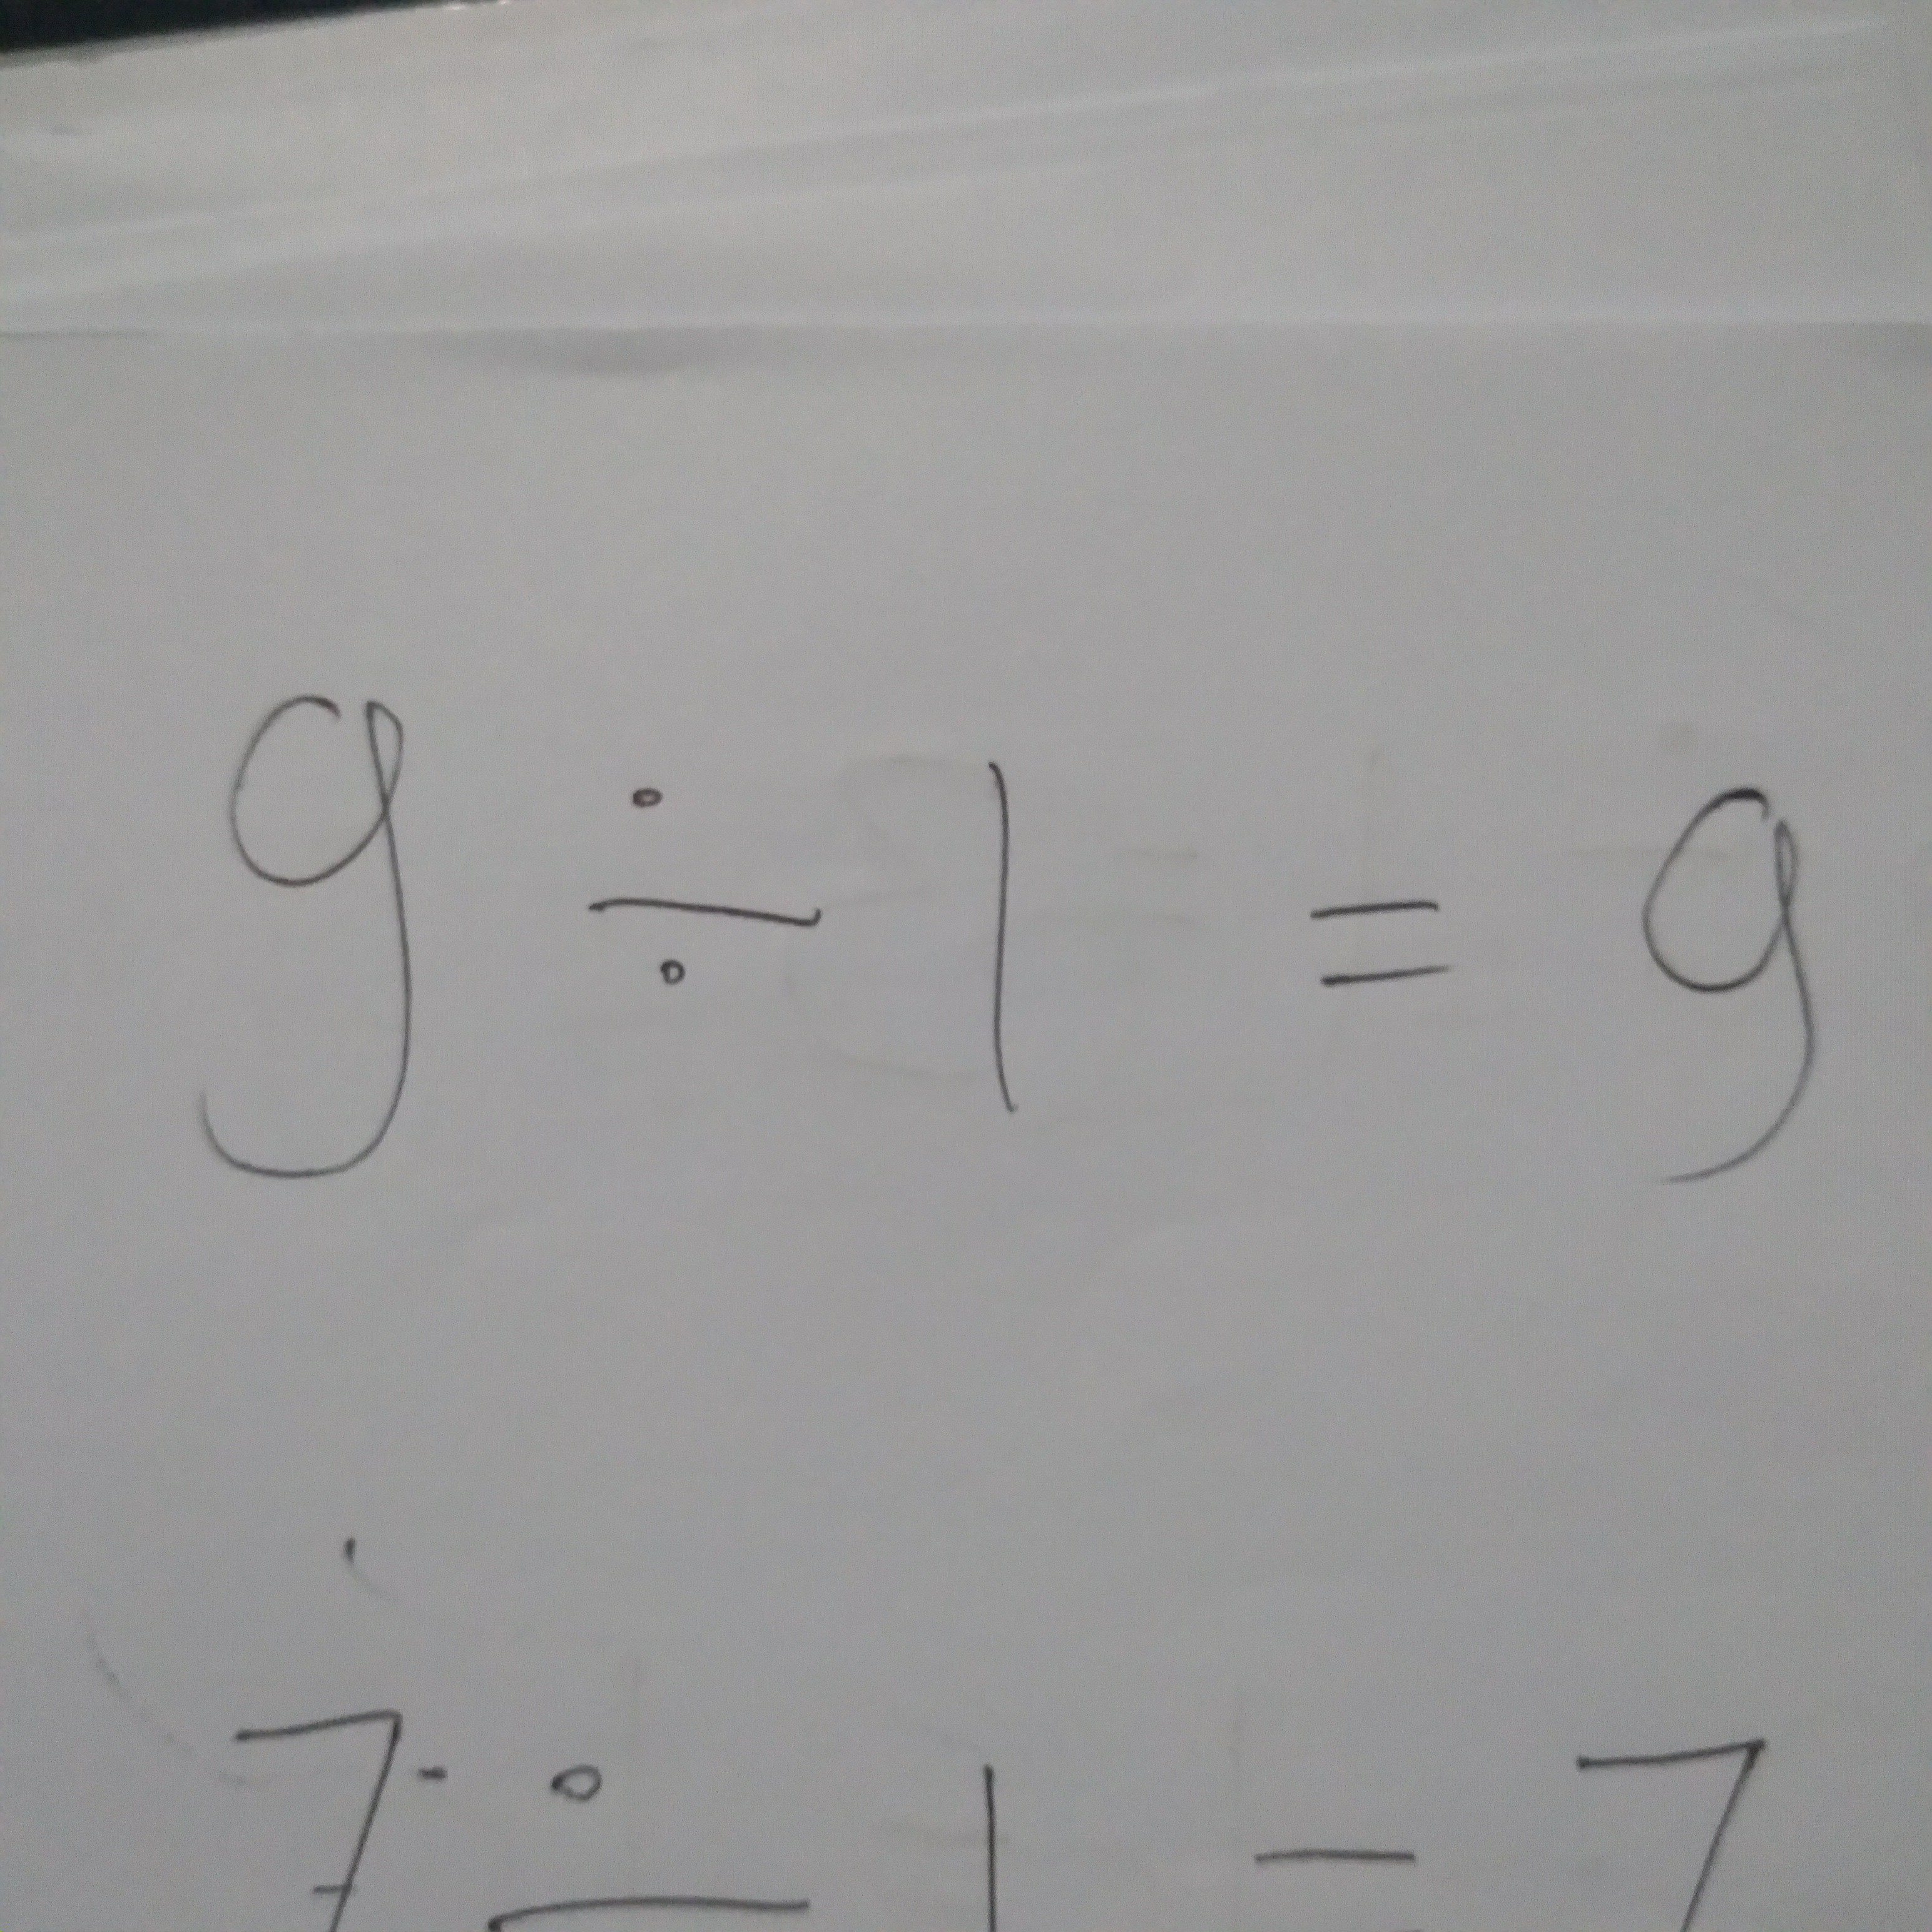 9 ÷ 1 = 9
7 ÷ 1 = 7